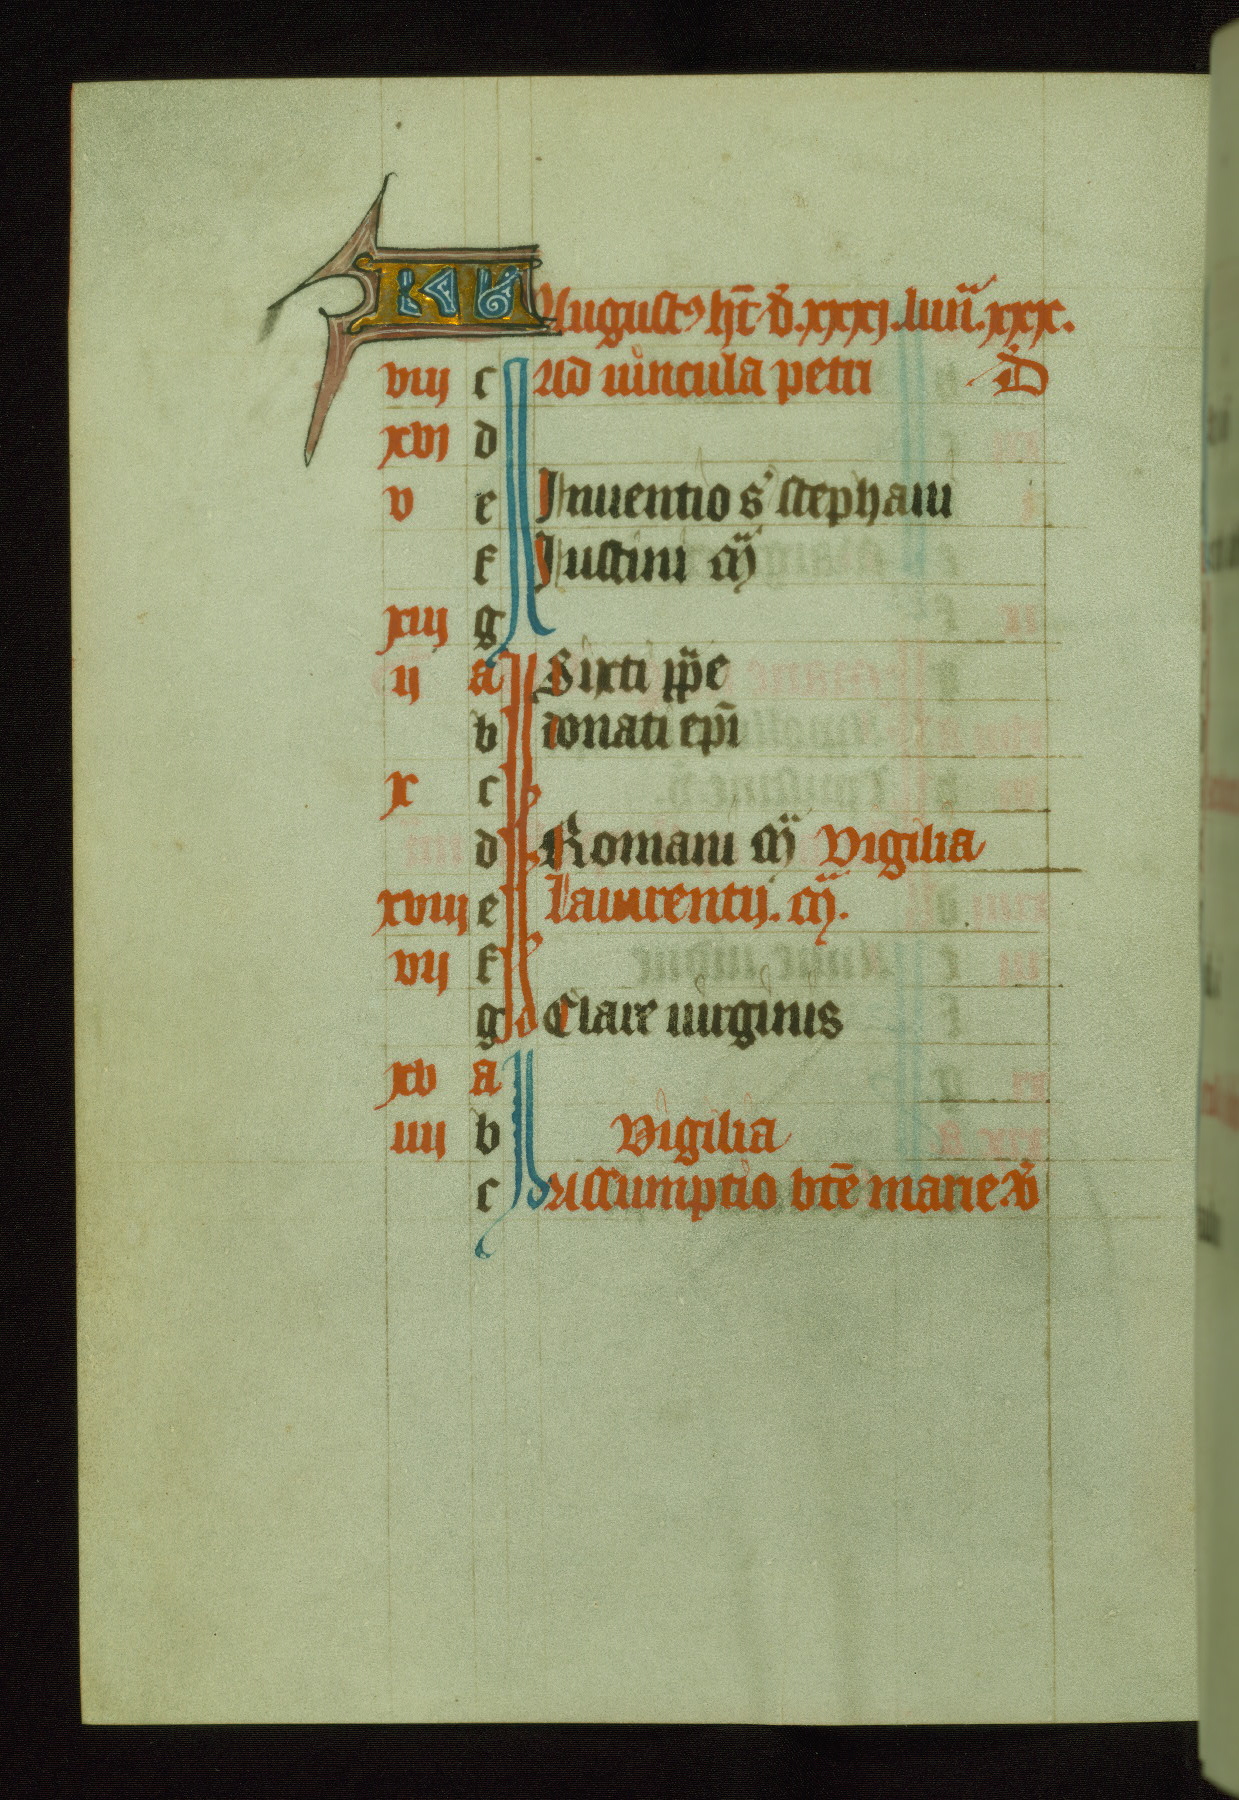 KL Augustꝰ ht̄ d̄. xxxj. lun̄. xxx.
viij c Ad uincula petri D
xvj d
v e Inuentio s' stephani
f Iustini m̄
xiij g
ij a Sixti pp̄e
b donati ep̄i
x c
d Romani m̄ Vigilia
xviij e laurentij. m̄.
vij f
g Clare uirginis
xv a
iiij b Vigilia
c Assumptio bt̄e marie. v̄